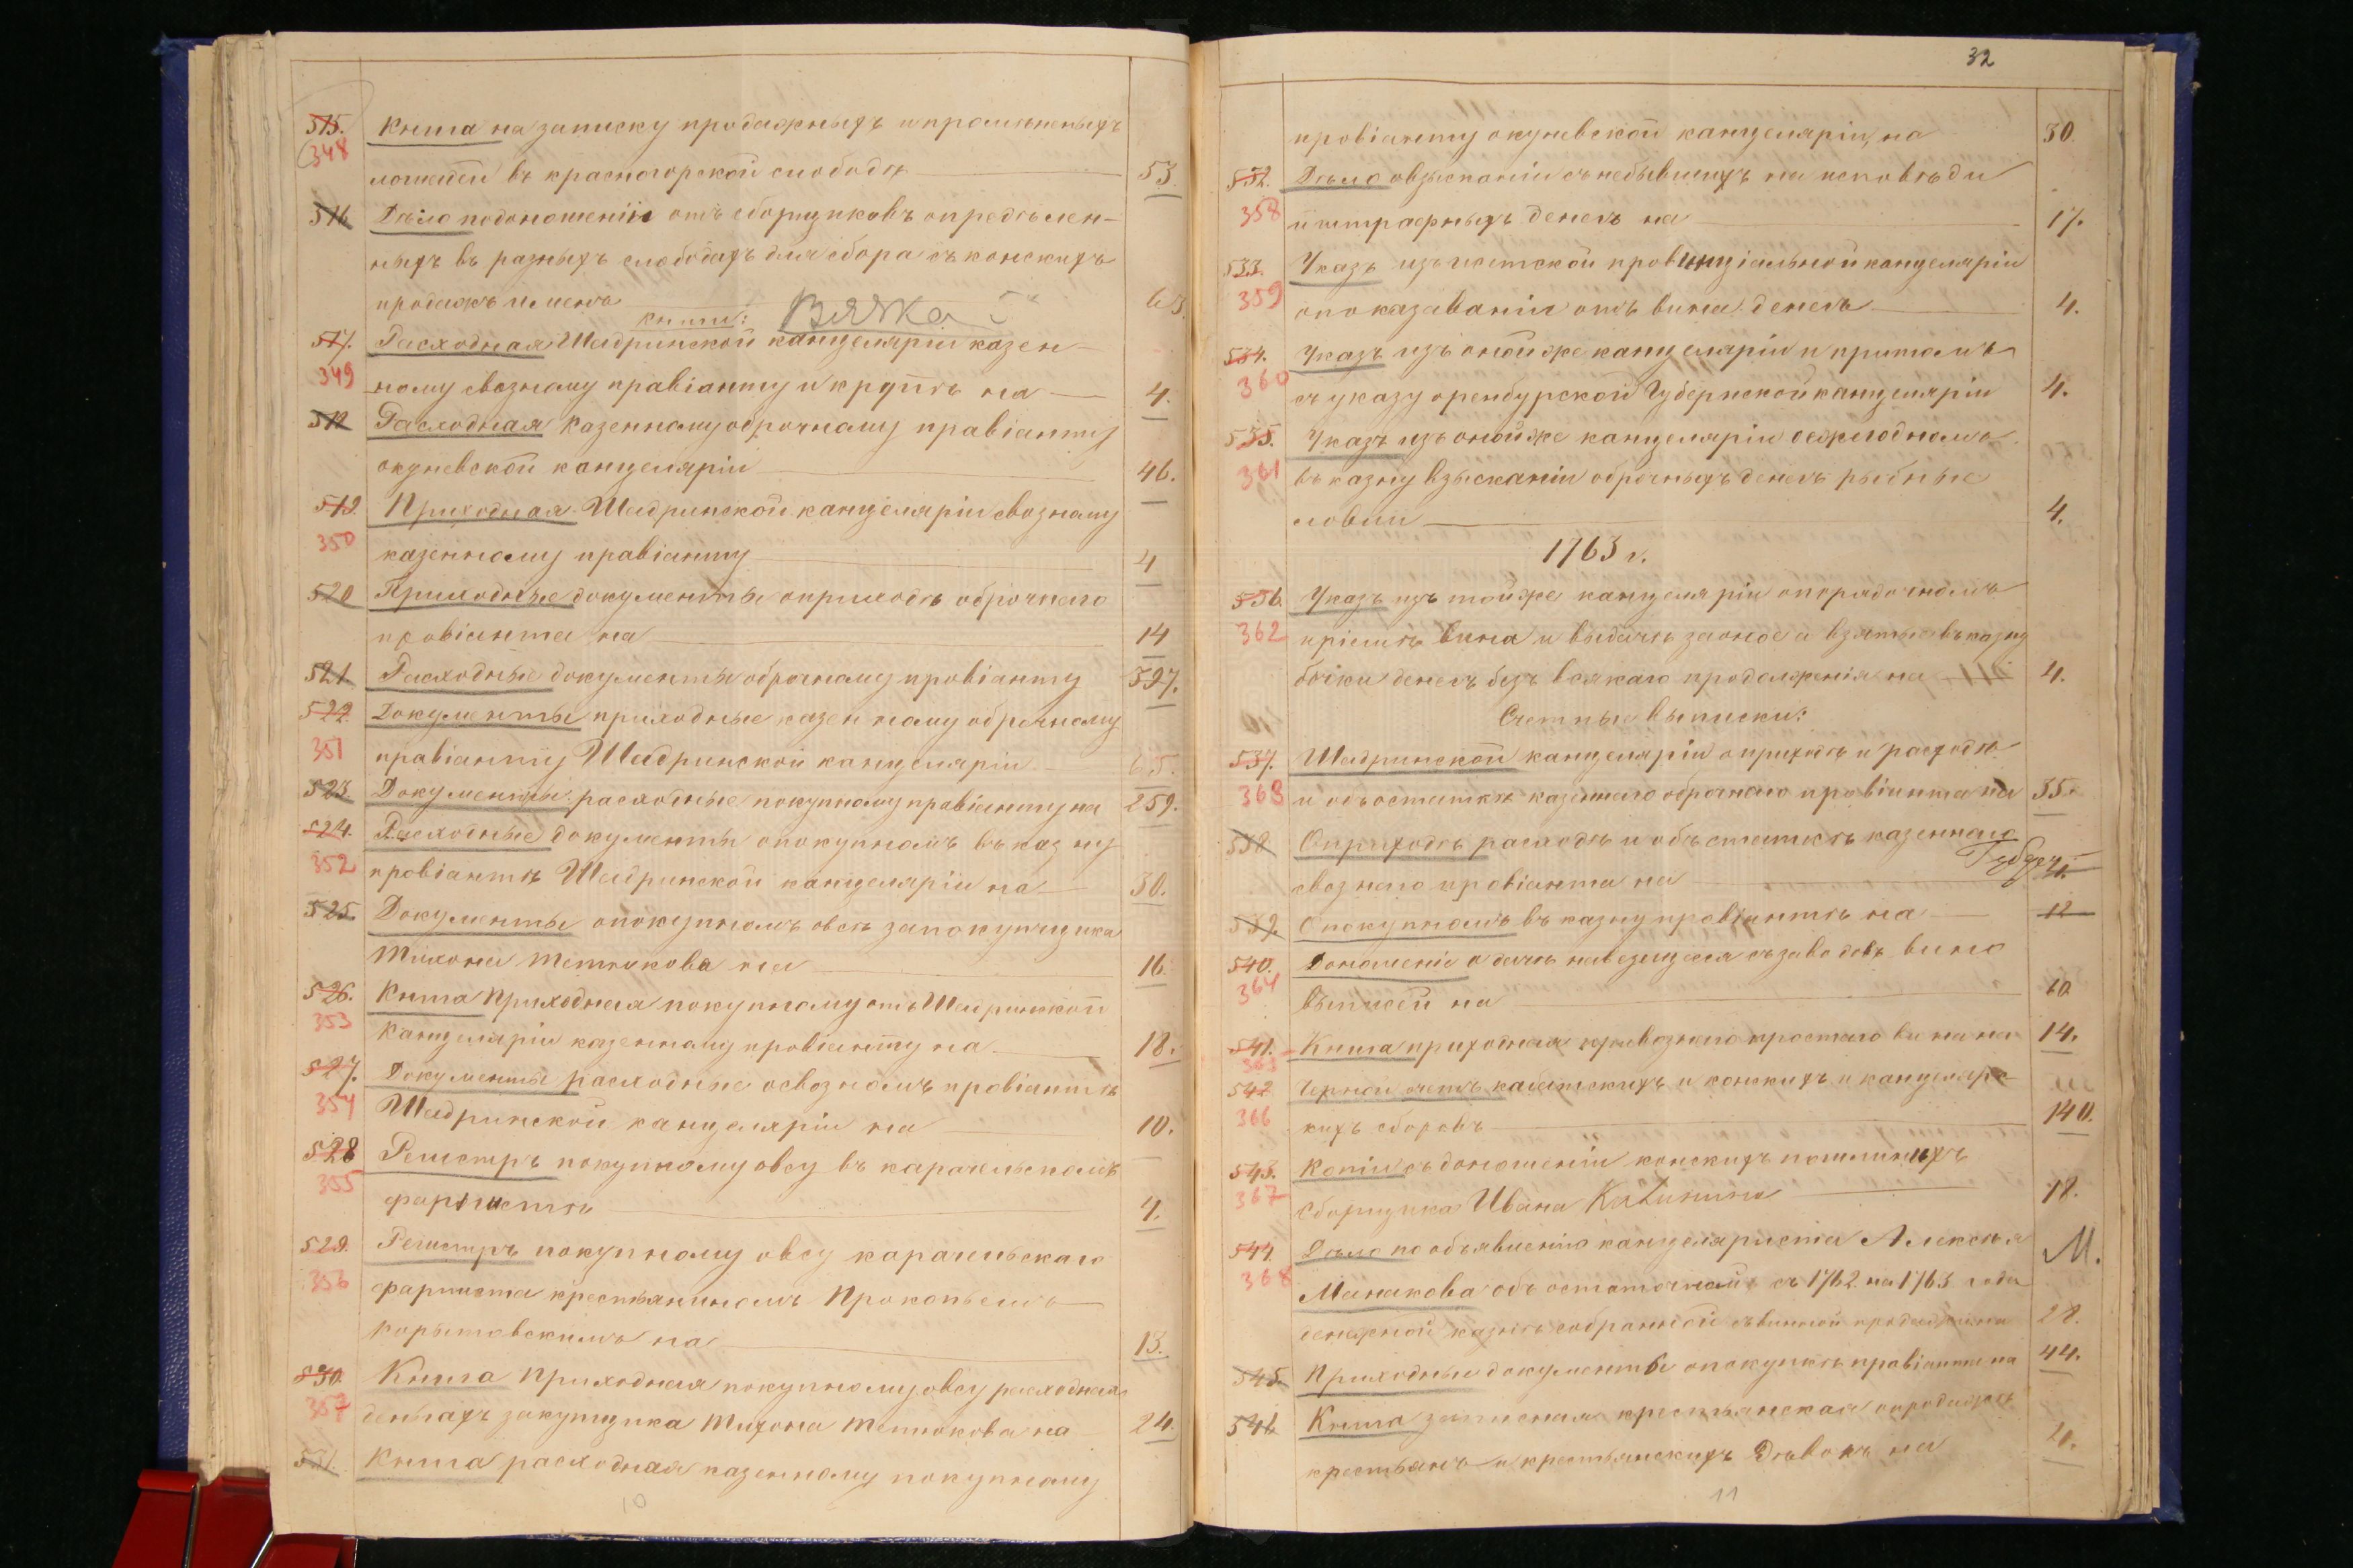 515. Книга на записку продажныхъ и промѣненныхъ
348 лошадей въ красногорской слободѣ 53.
516 Дѣло подоношенію отъ сборщиковъ опредѣлен-
ныхъ въ разныхъ слободахъ для сбора съ конскихъ
продажъ именъ 63.
книги: Вяжка
517. Расходная Шадринской канцеляріи казен-
349 ному свозному правіанту и крупѣ на 4.
518 Расходная казенному оброчному правіанту
окуневской канцеляріи 46.
519 Приходная Шадринской канцеляріи свозному
350 казенному правіанту 4
520 Приходные документы оприходѣ оброчнаго
провіанта на 14
521. Расходные документы оброчному провіанту 597.
522. Документы приходные казенному оброчному
351 правіанту Шадринской канцеляріи 65.
523. Документы расходные покупному правіанту на 259.
524. Расходные документы опокупномъ въ казну
352 провіантѣ Шадринской канцеляріи на 30.
525. Документы опокупномъ овсѣ закупщика
Тихона на 16.
526. Книга приходная покупному отъ Шадринской
353 канцеляріи казенному провіанту на 18.
527. Документы расходные освозномъ провіантѣ
354 Шадринской канцеляріи на 10.
528 Регистръ покупному овсу въ карачельномъ
355 форпостѣ 4.
529. Регистръ покупному овсу карачельскаго
356 фарпоста крестьяниномъ Прокопьемъ
на 13.
530. Книга приходная покупному овсу расходная
357 деньгахъ закупщика Тихона на 24.
531. Книга расходная казенному покупному
10
32
провіанту окуневской канцеляріи, на 30.
532. Дѣло овзысканіи съ небывшихъ на исповѣди
358 штрафныхъ денегъ на 17.
533. Указъ изъ исетской провинціальной канцеляріи
359 опоказаваніи отъ вина денегъ 4.
534. Указъ изъ оной же канцеляріи и притомъ
360 съ указу оренбургской Губернской канцеляріи 4.
535. Указъ изъ оной же канцеляріи оежегодномъ
361 въ казну взысканіи оброчныхъ денегъ рыбные
ловли 4.
1763 г.
536. Указъ изъ той же канцеляріи опорядочномъ
362 пріемѣ вина и выдачѣ заоное и взятые въ казну
бочки денегъ безъ всякаго продолженія на 4.
Счетные выписки:
537. Шадринской канцеляріи оприходѣ и расходѣ
363 и объ остаткѣ казеннаго оброчнаго провіанта на 35.
538 Оприходѣ расходѣ и объ остаткѣ казеннаго
свознаго провіанта на
539. Опокупномъ въ казну провіантѣ на 12
540. Доношеніе о дачѣ съ заводовъ вино
364 выписей на 10
541. Книга приходная привознаго простаго вина на 14.
365
542 Черной счетъ кабатскихъ и конскихъ и канцелярс-
366 кихъ сборовъ 140.
543. Копіи съ доношеніи конскихъ пошлинныхъ
367 сборщика Ивана Калинина 18.
544. Дѣло по объявленію канцеляриста Алексѣя М.
368 Манакова объ остаточной съ 1762 на 1763 года
денежной казнѣ собранной съ винной продажи на 28.
545. Приходные документы опокупкѣ правіанта на 44.
546 Книга записная крестьянская опродажѣ
крестьянъ и крестьянскихъ Дѣвокъ на 20.
11